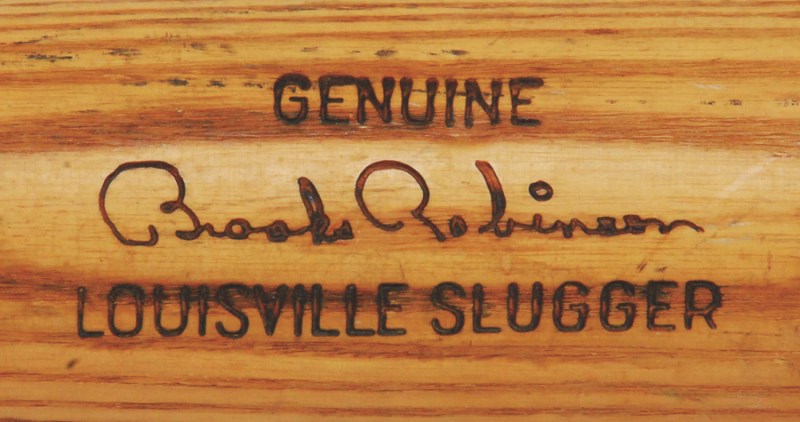 GENUINE
Brooks Robinson
LOUISVILLE SLUGGER